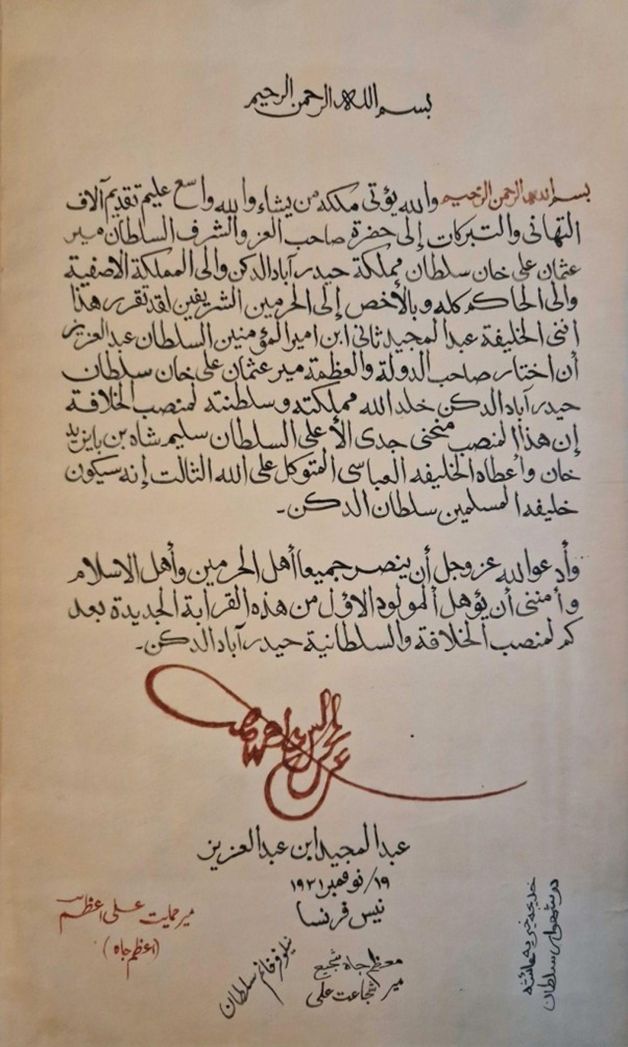 بسم الله الرحمن الرحيم
بسم الله الرحمن الرحيم والله يؤتى ملكه من يشاء والله واسع عليم تقديم آلاف
التهانى والتبركات إلى حضرة صاحب العز والشرف السلطان مير
عثمان على خان سلطان مملكة حيدرآباد الدكن والى المملكة الاصفية
والى الحاكم كله وبالأخص إلى الحرمين الشريفين لقد تقرر هذا
اننى الخليفة عبدالمجيد ثانى ابن اميرالمؤمنين السلطان عبدالعزيز
أن اختار صاحب الدولة والعظمة مير عثمان على خان سلطان
حيدرآباد الدكن خلد الله مملكته وسلطنته لمنصب الخلافة
إن هذا المنصب منحنى جدى الأعلى السلطان سليم شاه بن بايزيد
خان وأعطاه الخليفه العباسى المتوكل على الله الثالث إنه سيكون
خليفه المسلمين سلطان الدكن -
وأدعو الله عز وجل أن ينصر جميعا أهل الحرمين وأهل الاسلام
وأمنى أن يؤهل المولود الاول من هذه القرابة الجديدة بعد
كم لمنصب الخلافة والسلطانية حيدرآباد الدكن -
عبدالمجيد ابن عبدالعزيز
١٩/نوفمبر ١٩٣١
نيس فرنسا
مير حمايت على اعظم
(اعظم جاه)
معظم جاه شجيع
مير شجاعت على
نيلوفر خانم سلطان
خديجه خيريه عائشه
در شهوار سلطان